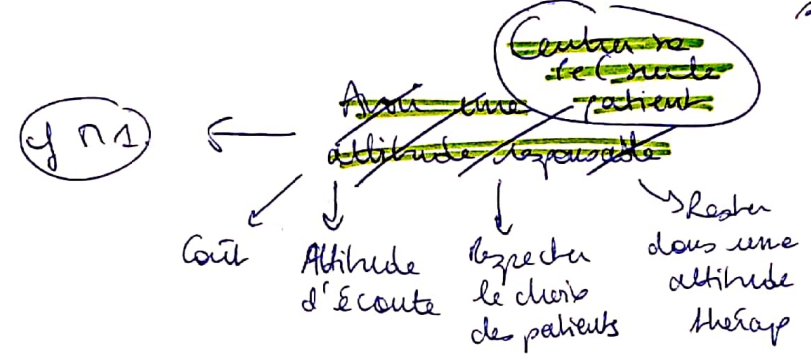 Centrer sa
recherche
patient
Avoir une
attitude responsable
cf M1
Coût
Attitude
d'écoute
Respecter
le choix
des patients
Rester
dans une
attitude
thérap